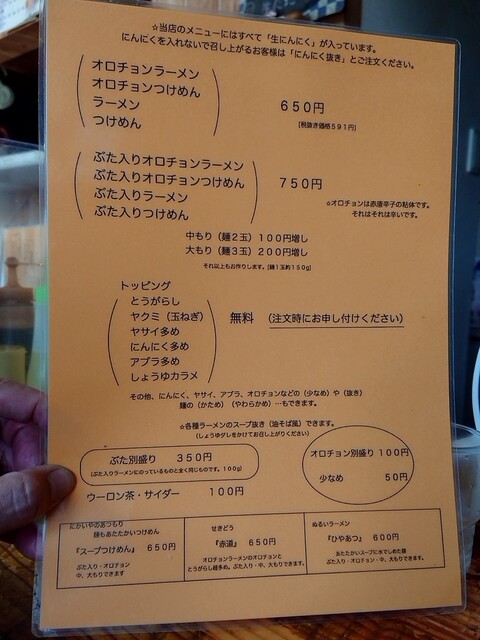 ☆当店のメニューにはすべて「生にんにく」が入っています。
にんにくを入れないで召し上がるお客様は「にんにく抜き」とご注文ください。
オロチョンラーメン
オロチョンつけめん
ラーメン
つけめん
650円
[税抜き価格591円]
ぶた入りオロチョンラーメン
ぶた入りオロチョンつけめん
ぶた入りラーメン
ぶた入りつけめん
750円
☆オロチョンは赤唐辛子の粘体です。
それはそれは辛いです。
中もり（麺2玉）100円増し
大もり（麺3玉）200円増し
それ以上もお作りします。[麺1玉約150g]
トッピング
とうがらし
ヤクミ（玉ねぎ）
ヤサイ多め
にんにく多め
アブラ多め
しょうゆカラメ
無料 （注文時にお申し付けください）
その他、にんにく、ヤサイ、アブラ、オロチョンなどの（少なめ）や（抜き）
麺の（かため）（やわらかめ）…もできます。
☆各種ラーメンのスープ抜き（油そば風）できます。
（しょうゆダレをかけてお召し上がりください）
ぶた別盛り 350円
（ぶた入りラーメンにのっているものと全く同じものです。100g）
オロチョン別盛り 100円
少なめ 50円
ウーロン茶・サイダー 100円
にかいやのあつもり
麺もあたたかいつけめん
『スープつけめん』 650円
ぶた入り・オロチョン
中、大もりできます
せきどう
『赤道』 650円
オロチョンラーメンのオロチョンと
とうがらし超多め。ぶた入り・中、大もりできます。
ぬるいラーメン
『ひやあつ』 600円
あたたかいスープに水でしめた麺
ぶた入り・オロチョン・中、大もりできます。